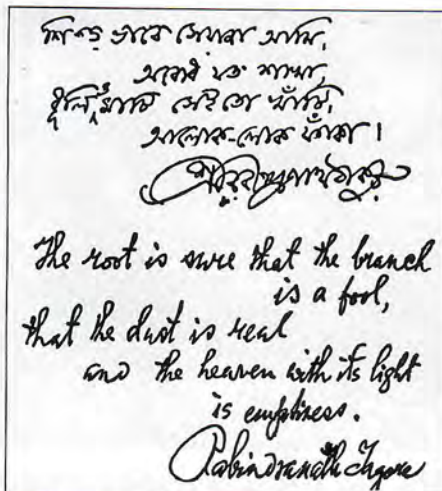 শিকড় ভাবে সেয়ানা আমি,
অবোধ যত শাখা,
ধূলি ও মাটি সেই তো খাঁটি,
আলোক-লোক ফাঁকা।
শ্রীরবীন্দ্রনাথ ঠাকুর
The root is sure that the branch
is a fool,
that the dust is real
and the heaven with its light
is emptiness.
Rabindranath Tagore